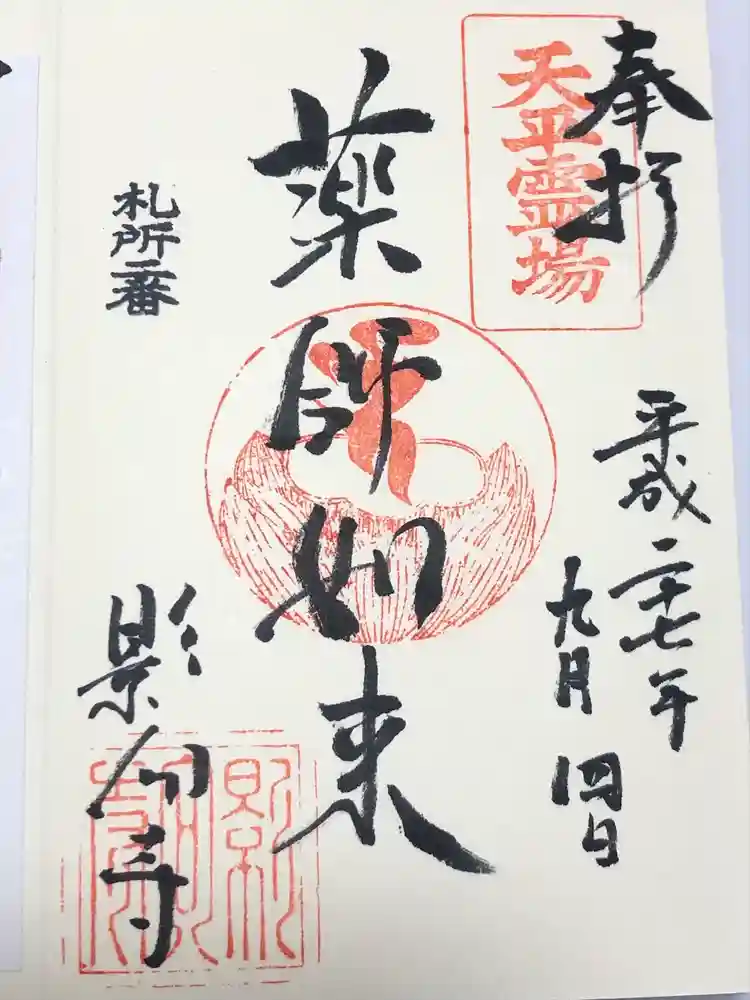 奉拝
天平霊場
平成二十七年
九月四日
薬師如来
札所一番
影向寺